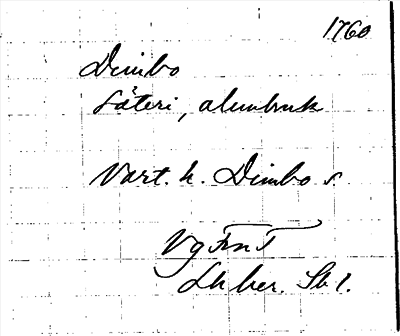 1760
Dimbo
Säteri, alumbruk
Vart. h. Dimbo s.
Vg FmT
Lh ber. Sb 1.